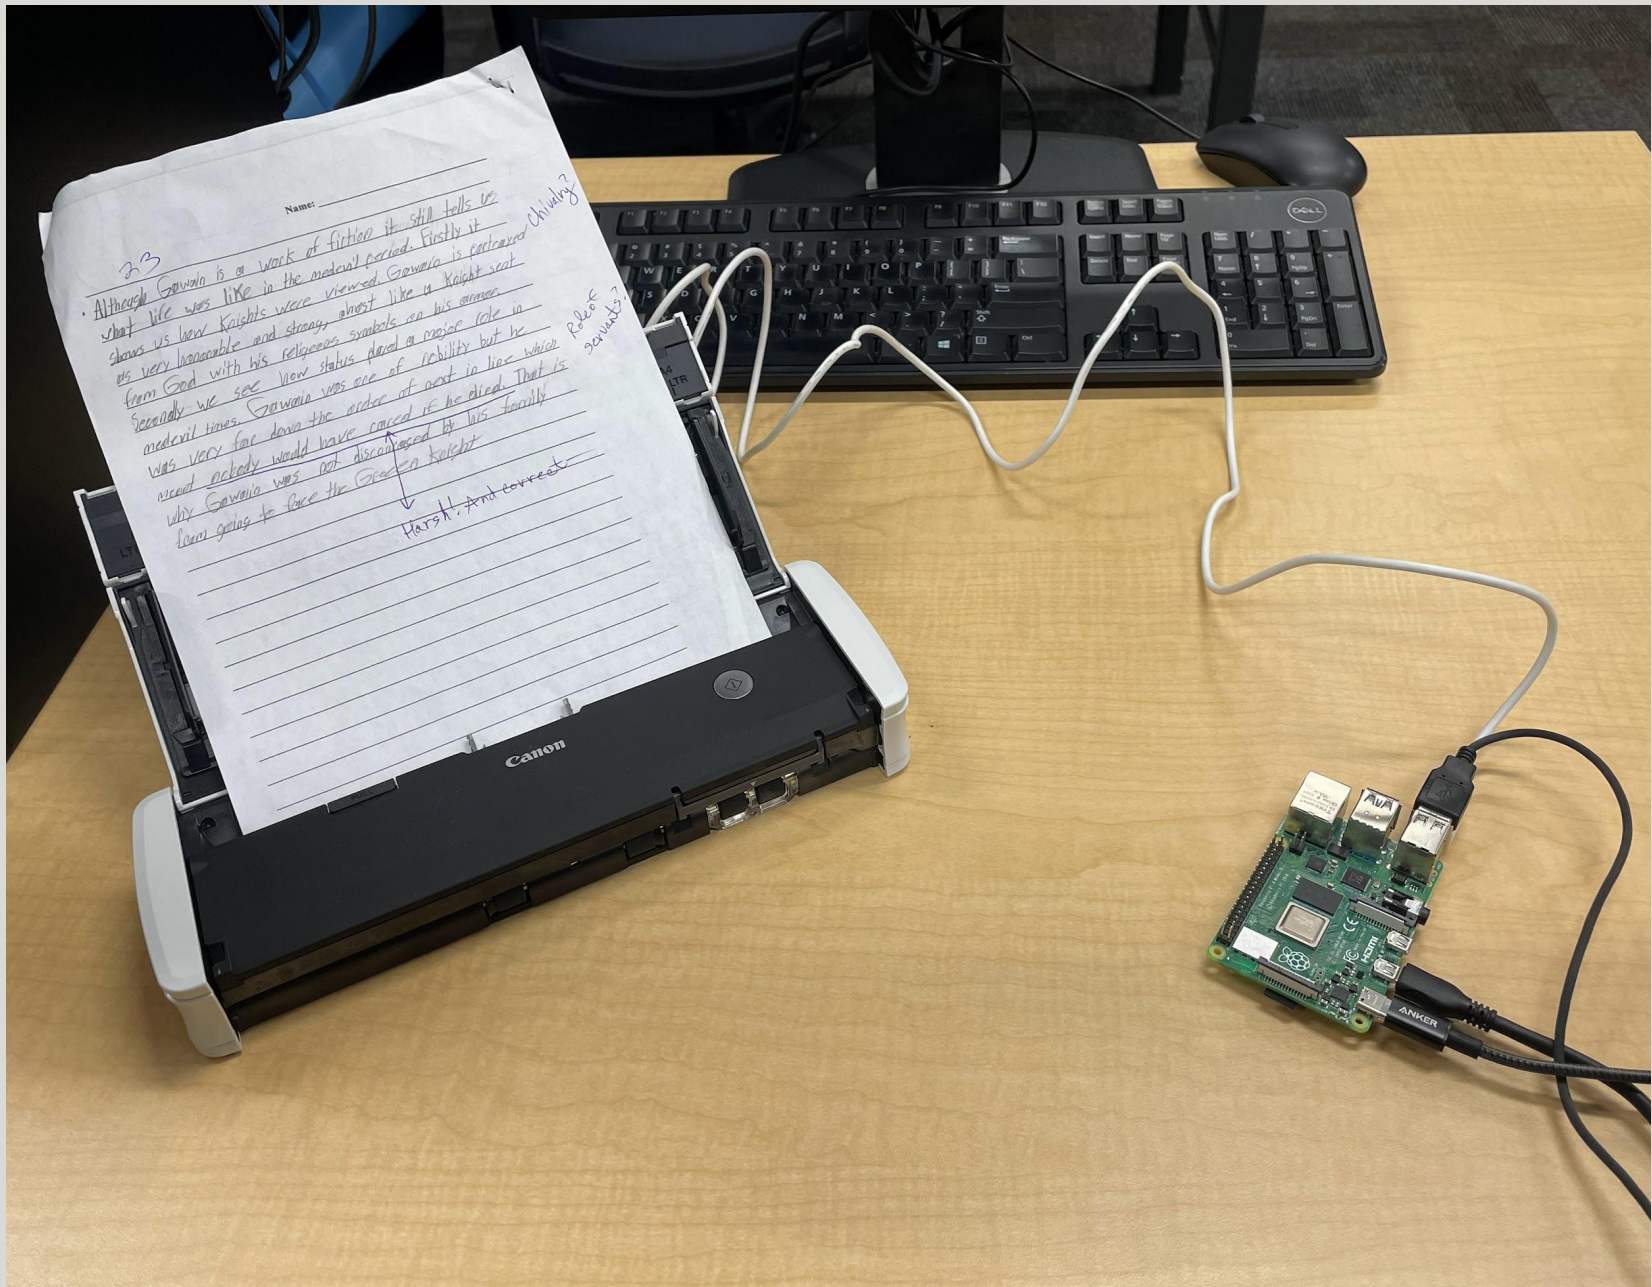 Name:
23
Although Gawain is a work of fiction it still tells us
what life was like in the medevil period. Firstly it
shows us how Knights were viewed. Gawain is portrayed
as very honorable and strong, almost like a Knight sent
from God with his religeous symbols on his armor.
Secondly we see how status played a major role in
medevil times. Gawain was one of nobility but he
was very far down the order of next in line which
meant nobody would have cared if he died. That is
why Gawain was not discouraged by his family
from going to face the Green Knight
Chivalry?
Role of
servants?
Harsh! And correct
Canon
A4
LTR
DELL
HDMI
ANKER